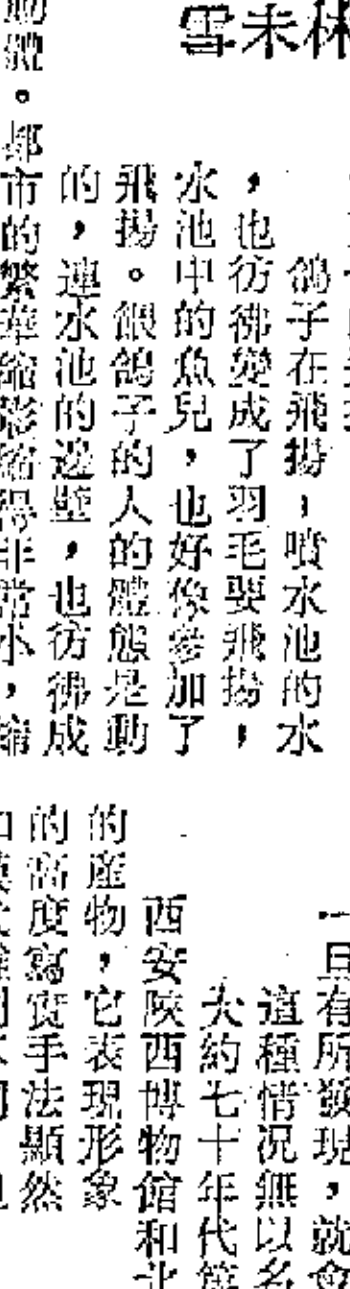 林未雪
鴿子在飛揚，噴水池的水
，也彷彿變成了羽毛要飛揚，
水池中的魚兒，也好像參加了
飛揚。餵鴿子的人的體態是動
的，連水池的邊壁，也彷彿成
。都市的繁華縮影縮得非常小，縮
一旦有所發現，就會
這種情況無以名
大約七十年代
西安陝西博物館和北
的產物，它表現形象
的高度寫實手法顯然